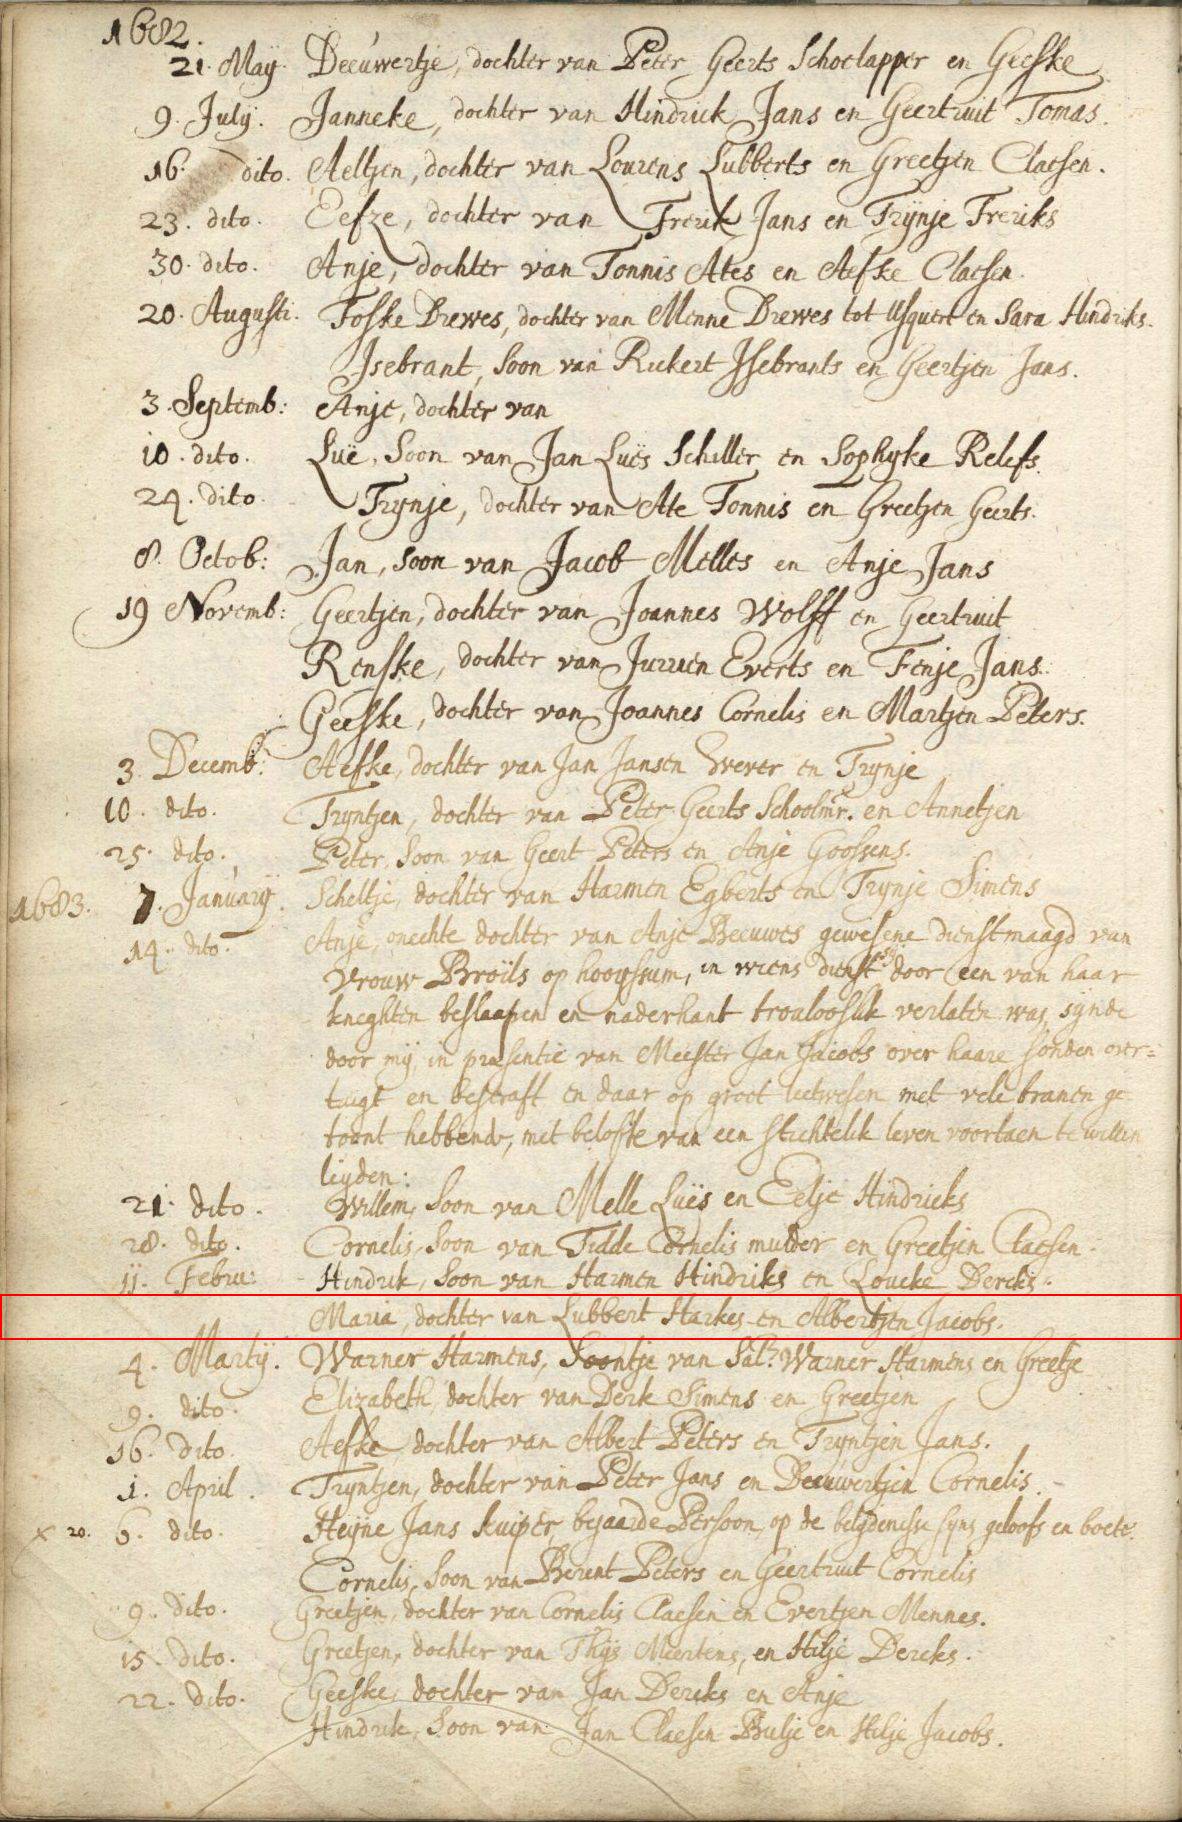 1682.
21. Maÿ. Deeuwertje, dochter van Peter Geerts Schoelapper en Geeske
9. Julÿ. Janneke, dochter van Hindrick Jans en Geertruit Tomas.
16. dito. Aeltjen, dochter van Lourens Lubberts en Greetjen Claesen.
23. dito. Eefze, dochter van Frerik Jans en Trÿnje Freriks
30. dito. Anje, dochter van Tonnis Ates en Aefke Claesen.
20. Augusti. Foske Drewes, dochter van Menne Drewes tot Usquert en Sara Hindriks.
Isebrant, Soon van Rickert Isebrants en Geertjen Jans.
3. Septemb: Anje, dochter van
10. dito. Luë, Soon van Jan Luës Schiller en Sophyke Relefs.
24. dito. Trynje, dochter van Ate Tonnis en Greetjen Geerts.
8. Octob: Jan, soon van Jacob Melles en Anje Jans
19 Novemb: Geertjen, dochter van Joannes Wolff en Geertruit
Renske, dochter van Jurrien Everts en Fenje Jans.
Geeske, dochter van Joannes Cornelis en Martjen Peters.
3. Decemb: Aefke, dochter van Jan Jansen Wever en Trynje
10. dito. Tryntjen, dochter van Peter Geerts Schoolmr. en Annetjen
25. dito. Peter, Soon van Geert Peters en Anje Goossens.
1683. 7. Januarÿ. Scheltje, dochter van Harmen Egberts en Trynje Simens
14. dito. Anje, onechte dochter van Anje Beeuwes gewesene dienstmaagd van
vrouw Broïls op hooyssum, in wiens dienst door een van haar
kneghten beslaapen en naderhant troulooslik verlaten was, synde
door mÿ, in præsentie van Meester Jan Jacobs over haare sonden over=
tuigt en bestraft en daar op groot leetwesen met vele tranen ge
toont hebbende, met belofte van een stichtelik leven voortaen te willen
leyden:
21. dito. Willem, Soon van Melle Luës en Eelje Hindricks
28. dito. Cornelis, Soon van Tidde Cornelis mulder en Greetjen Claesen.
11. Febru: Hindrik, Soon van Harmen Hindriks en Loucke Dercks.
Maria, dochter van Lubbert Harkes en Albertjen Jacobs.
4. Martÿ. Warner Harmens, Soontje van Sal: Warner Harmens en Greetje
9. dito. Elizabeth, dochter van Derk Simens en Greetjen
16. dito. Aefke, dochter van Albert Peters en Tryntjen Jans.
1. April. Tryntjen, dochter van Peter Jans en Deeuwertjen Cornelis.
x 20. 6. dito. Heÿne Jans kuiper, bejaarde Persoon, op de belÿdenisse syns geloofs en boete.
Cornelis, Soon van Berent Peters en Geertruit Cornelis
9. dito. Greetjen, dochter van Cornelis Claesen en Evertjen Mennes.
15. dito. Greetjen, dochter van Thÿs Meertens, en Hilje Dercks.
22. dito. Geeske, dochter van Jan Dercks en Anje
Hindrik, Soon van Jan Claesen Bulje en Hilje Jacobs.